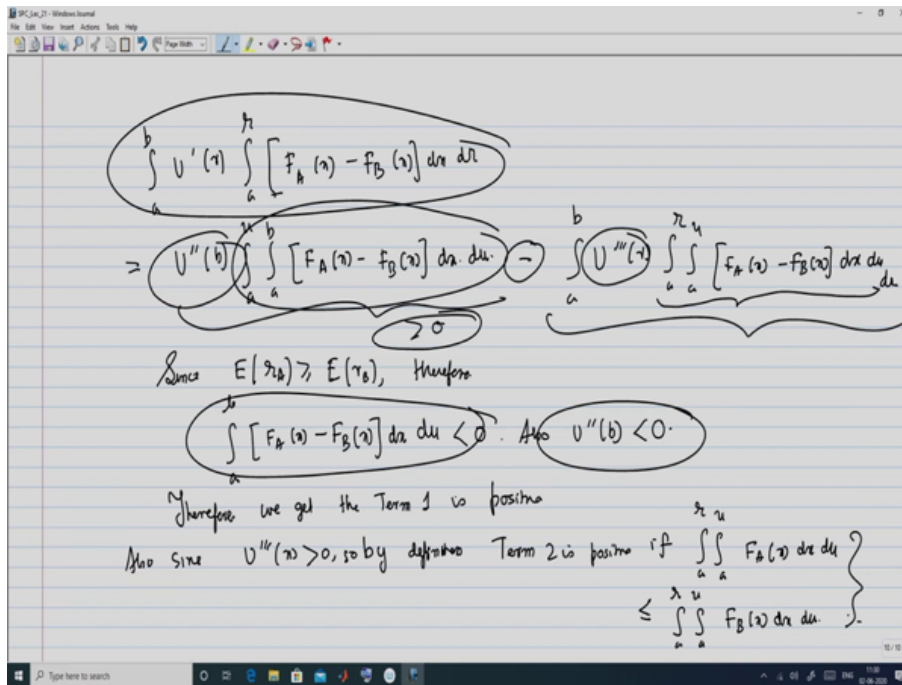 SPC_Lec_21 - Windows Journal
File Edit View Insert Actions Tools Help
Page Width
∫_a^b U'(r) ∫_a^r [F_A(x) - F_B(x)] dx dr
= U''(b) ∫_a^u ∫_a^b [F_A(x) - F_B(x)] dx. du. - ∫_a^b U'''(r) ∫_a^r ∫_a^u [F_A(x) - F_B(x)] dx du
du
> 0
Since E(r_A) ≥ E(r_B), therefore
∫_a^b [F_A(x) - F_B(x)] dx du < 0. Also U''(b) < 0.
Therefore we get the Term 1 is positive
Also since U'''(x) > 0, so by definition Term 2 is positive if ∫_a^r ∫_a^u F_A(x) dx du
≤ ∫_a^r ∫_a^u F_B(x) dx du.
10 / 10
Type here to search
ENG
11:00
02-06-2020